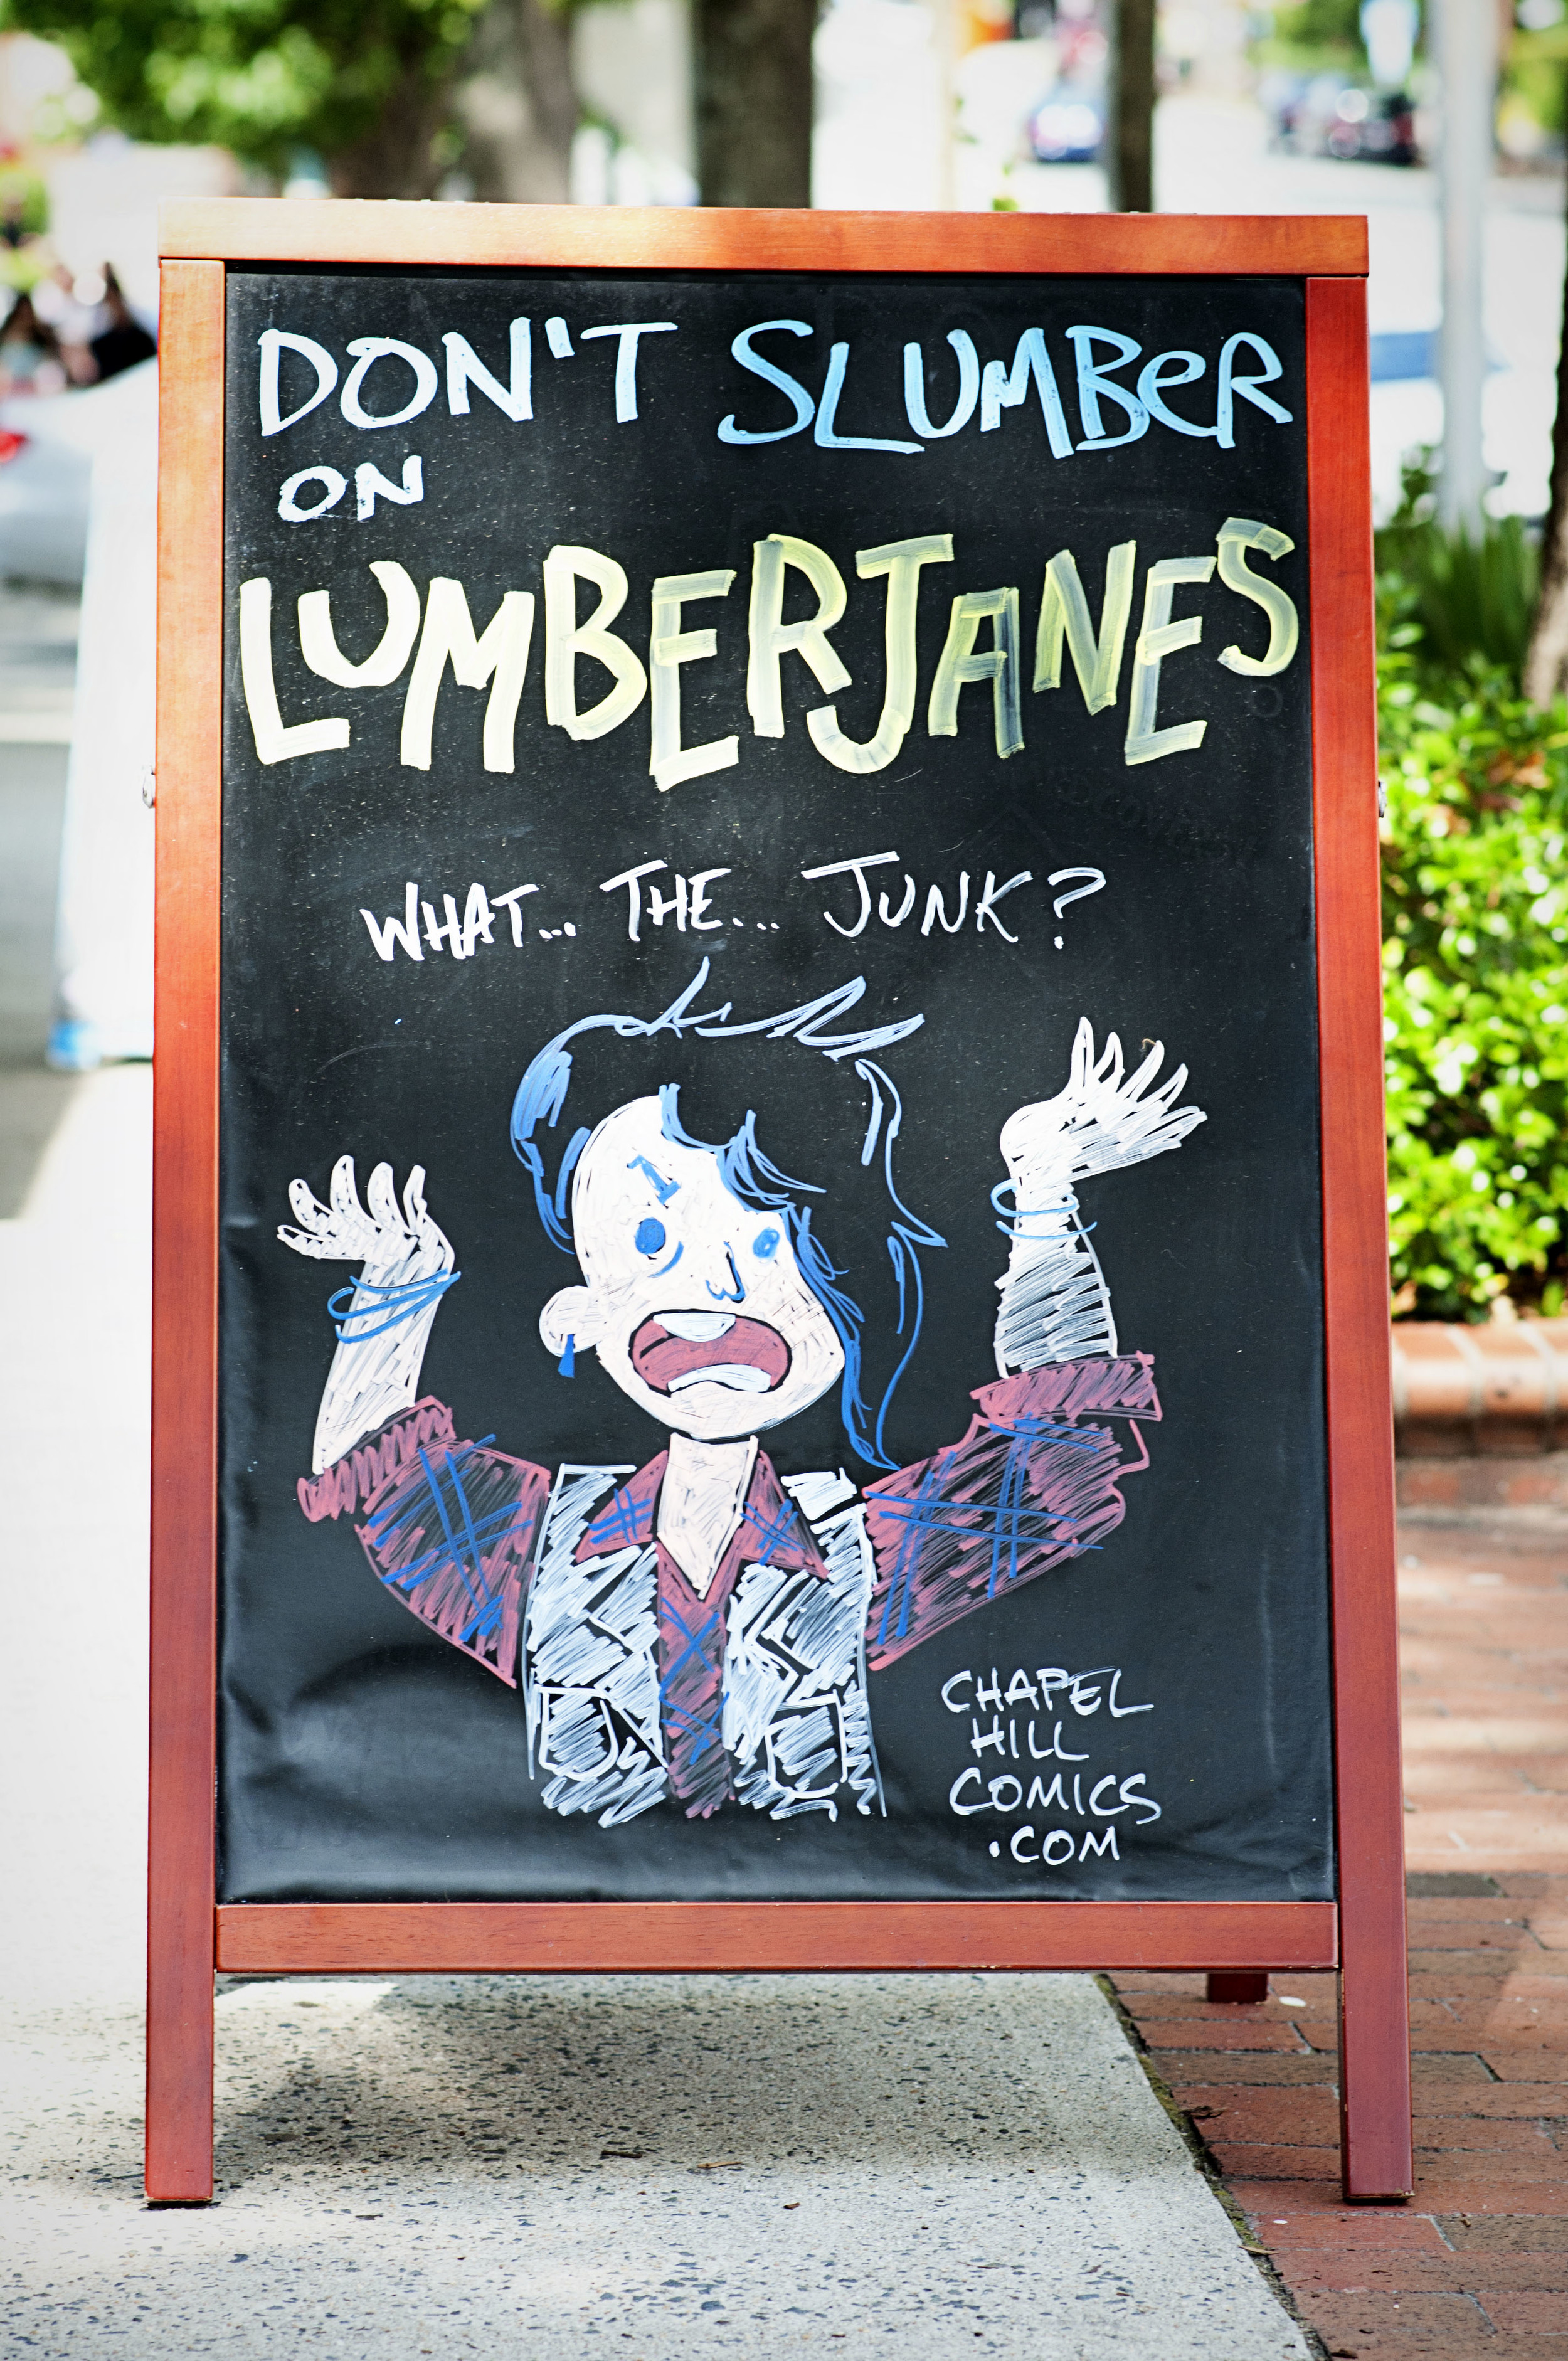 DON'T SLUMBER
ON
LUMBERJANES
WHAT... THE... JUNK?
CHAPEL
HILL
COMICS
.COM